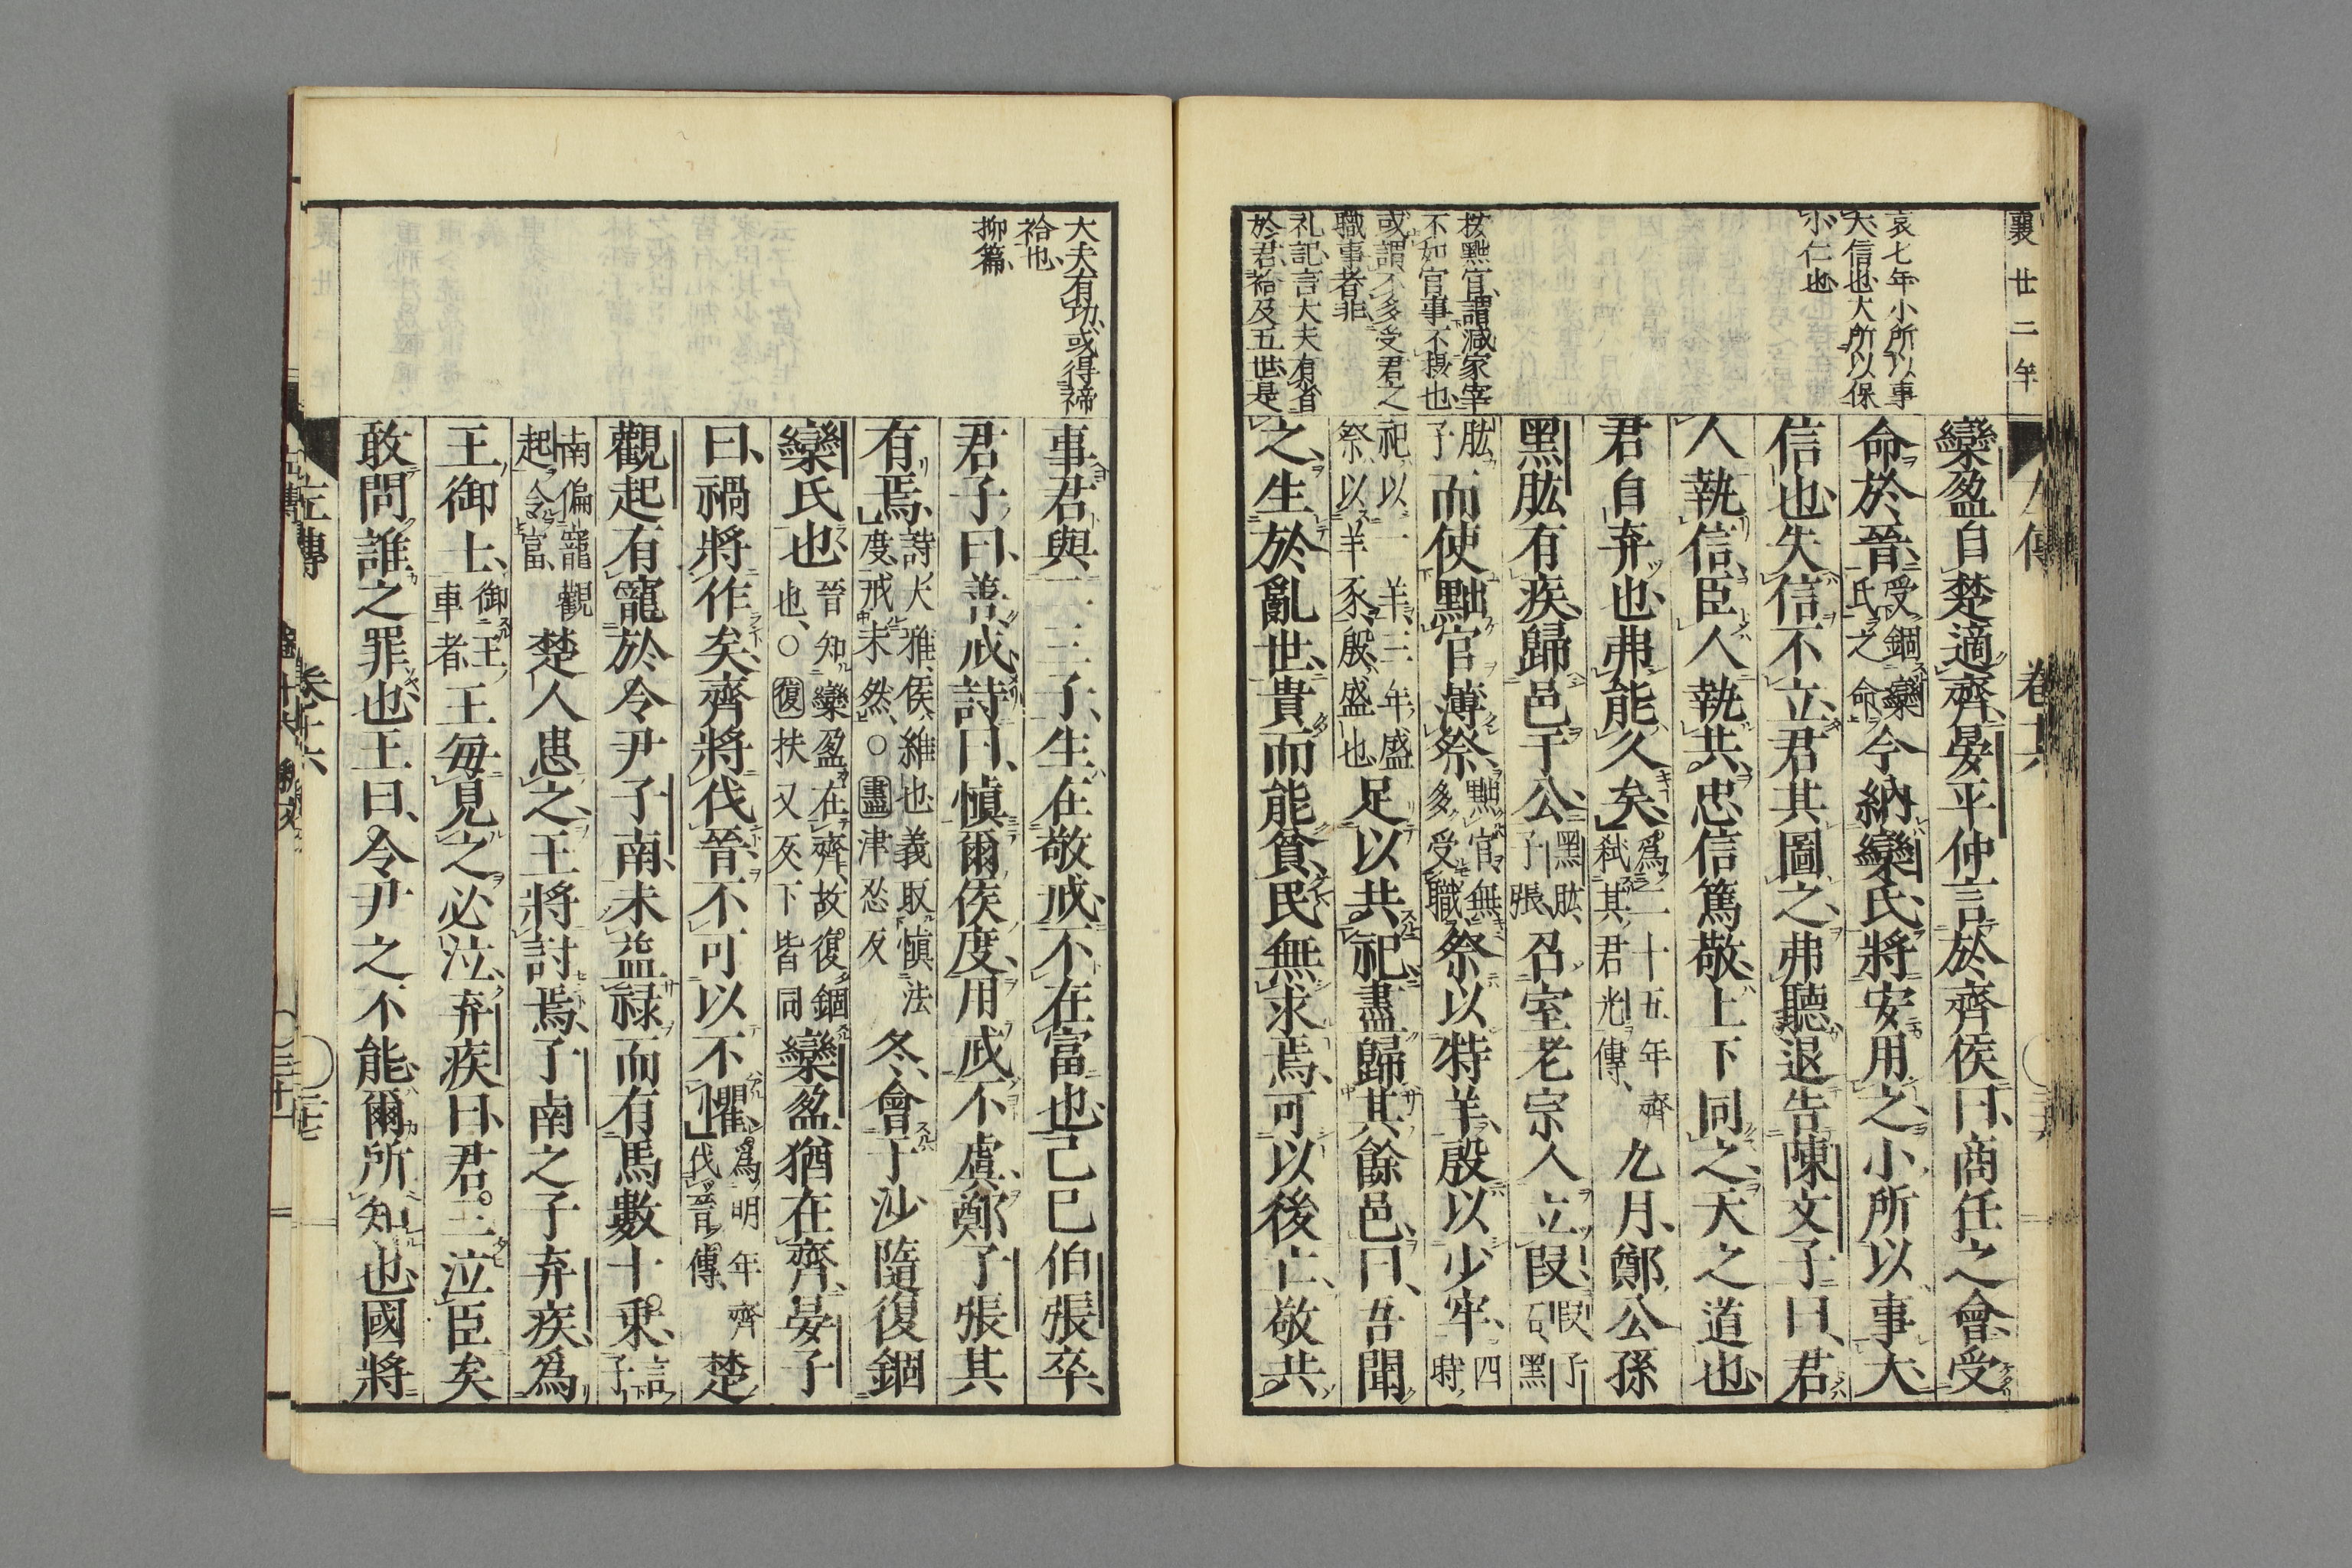 襄廿二年
哀七年小所以事
大信也大所以保
小仁也
按黜官謂減家宰
不如官事不摂也
或謂不多受君之
職事者非
礼記言大夫有省
於君祫及五世是
欒盈自楚適齊晏平仲言於齊侯曰商任之會受
命於晉受錮欒氏之命今納欒氏將安用之小所以事大
信也失信不立君其圖之弗聽退告陳文子曰君
人執信臣人執共忠信篤敬上下同之天之道也
君自弃也弗能久矣爲二十五年齊弑其君光傳九月鄭公孫
黑肱有疾歸邑于公黑肱子張召室老宗人立段段子石黑
肱子而使黜官薄祭黜官無多受職祭以特羊殷以少牢四時
祀以一羊三年盛祭以羊豕殷盛也足以共祀盡歸其餘邑曰吾聞
之生於亂世貴而能貧民無求焉可以後亡敬共
大夫有功或得禘
祫也
抑篇
事君與二三子生在敬戒不在富也己巳伯張卒
君子曰善戒詩曰愼爾侯度用戒不虞鄭子張其
有焉詩大雅侯維也義取愼法度戒未然○盡津忍反冬會于沙隨復錮
欒氏也晉知欒盈在齊故復錮也○復扶又反下皆同欒盈猶在齊晏子
曰禍將作矣齊將伐晉不可以不懼爲明年齊伐晉傳楚
觀起有寵於令尹子南未益祿而有馬數十乘言子
南偏寵觀起令富楚人患之王將討焉子南之子弃疾爲
王御士御王車者王每見之必泣弃疾曰君三泣臣矣
敢問誰之罪也王曰令尹之不能爾所知也國將
左傳 卷十六 ○二十七